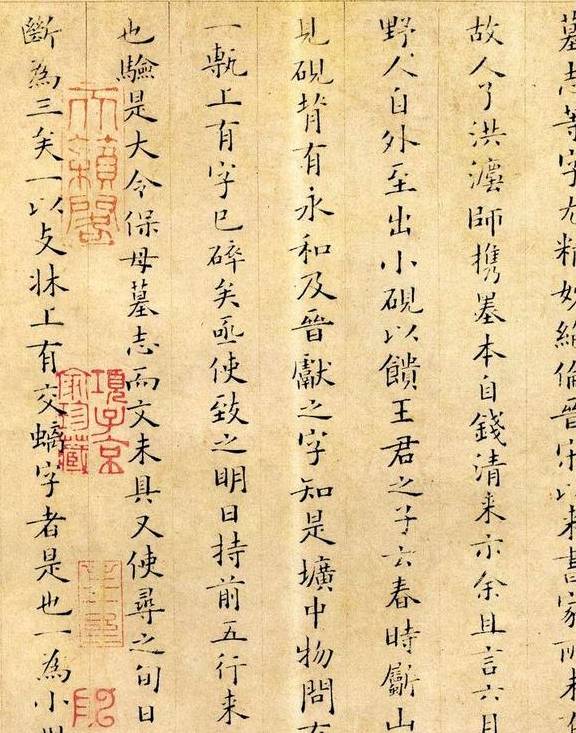 墓志等字尤精妙絶倫晉宋以来書家所未
故人了洪瀍師携墨本自錢清来示余且言六月
野人自外至出小硯以饋王君之子云春時斸山
見硯背有永和及晉獻之字知是壙中物問
一甎上有字已碎矣亟使致之明日持前五行来
也驗是大令保母墓志而文未具又使尋之旬日
斷為三矣一以支牀上有交螭字者是也一為小
天籟閣
項子京家珍藏